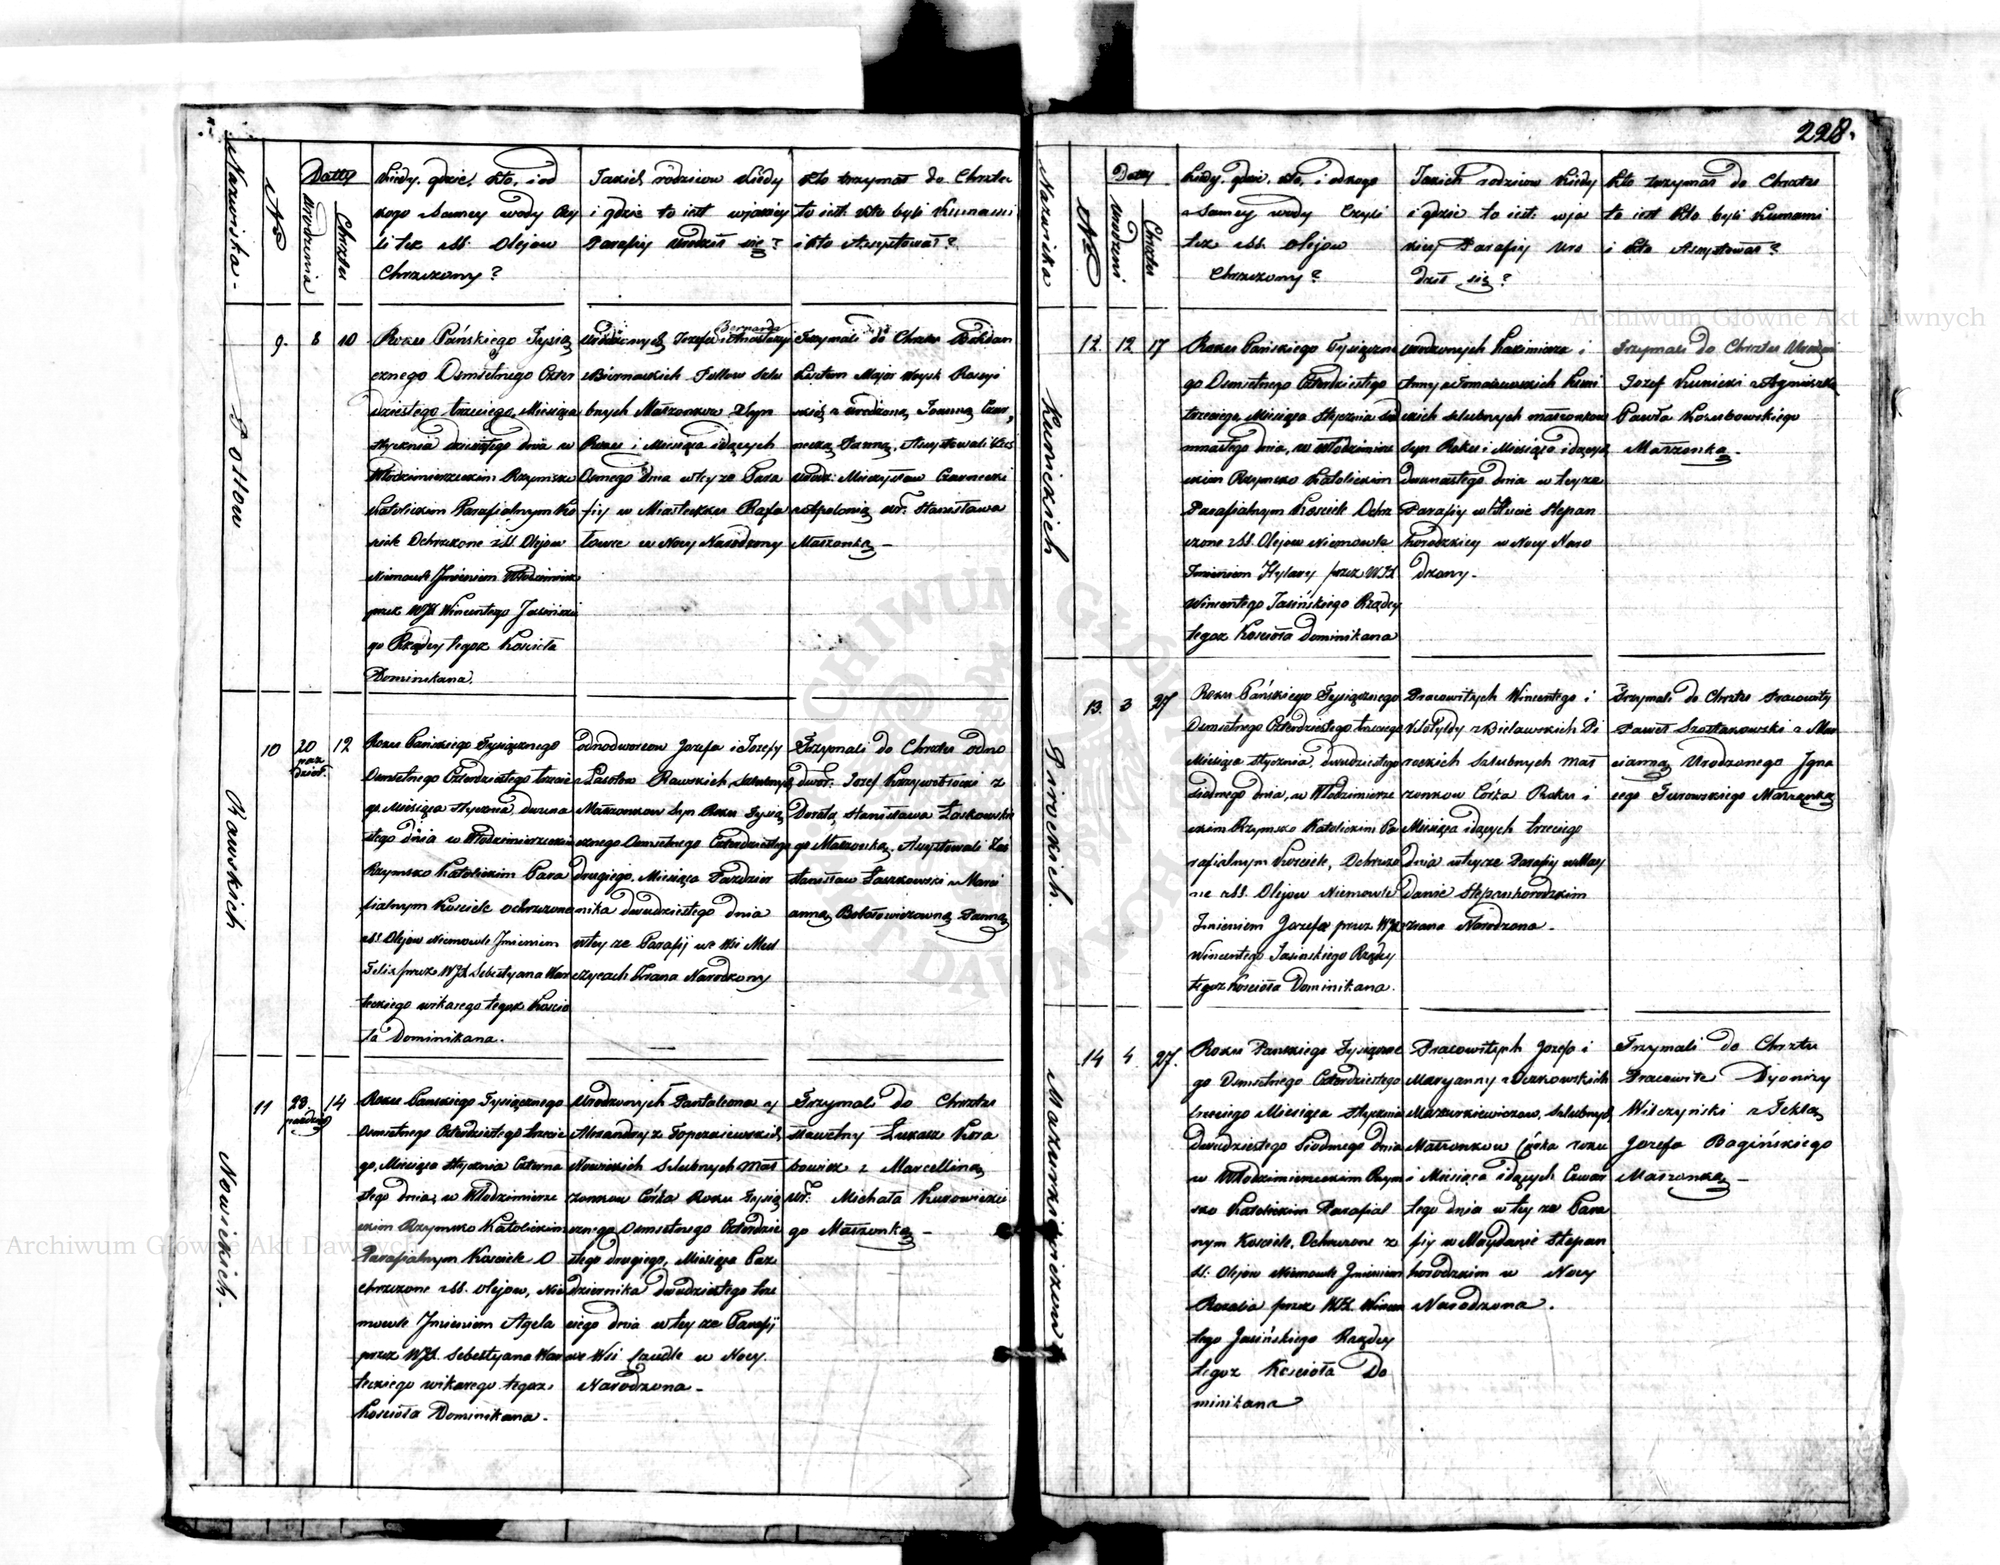 228.
Nazwiska
No
Datty
Urodzenia
Chrztu
Kiedy, gdzie, kto, i od
kogo z samey wody czy
li tez z SS. Olejow
Chrzczony?
Jakich rodzicow kiedy
i gdzie to iest w jakiey
Parafiy Urodził się?
Kto trzymał do Chrztu
to iest kto byli Kumami
i kto Assystował?
9. 8 10
Roku Pańskiego Tysią
cznego Osmsetnego Czter
dziestego trzeciego, Miesiąca
Stycznia dziesiątego dnia w
Włodzimierzeckim Rzymsko
Katolickim Parafialnym Ko
sciele Ochrzczone z SS. Olejow
Niemowle Jmieniem Włodzimierz
przez WJX Wincentego Jasinskie
go Rządcy tegoz Kościoła
Dominikana.
Urodzonych Jozefa Bernarda i Anastazyi
z Biernackich Szlu
bnych Małzonkow Syn
Roku i Miesiąca idących
Osmego dnia w tey ze Para
fiy w Miasteczku Rafa
łowce w Nocy Narodzony
Trzymali do Chrztu Bohdan
Major Woysk Rossyi
skich z urodzoną Joanną Czar
necką Panną, Assystowali
Urodz: Mieczysław Czarnecki
z Apolonią Ur. Stanisława
Małzonką –
10 20 paz dzier. 12
Rawskich
Roku Pańskiego Tysiącznego
Osmsetnego Czterdziestego trzecie
go, Miesiąca Stycznia, dwuna
stego dnia w Włodzimierzeckim
Rzymsko Katolickim Para
fialnym Kosciele ochrzczone
z SS. Olejow Niemowle Jmieniem
Felix przez WJX Sebestyana War
teckiego wikarego tegoz Koscio
ła Dominikana.
Odnodworcow Jozefa i Jozefy
Rawskich, Szlubnych
Małzonkow Syn Roku Tysią
cznego Osmsetnego Czterdziestego
drugiego, Miesiąca Pazdzier
nika dwudziestego dnia
w tey ze Parafij we Wsi Mul
czycach zrana Narodzony
Trzymali do Chrztu odno
dwor: Jozef z
Dorotą Stanisława Łaskowskie
go Małzonką. Assystowali
Stanisław Łaszkowski z Mary
anną Panną
11 23. pazdzier 14
Nowickich.
Roku Pańskiego Tysiącznego
Osmsetnego Czterdziestego trzecie
go, Miesiąca Stycznia Czterna
stego dnia, w Włodzimierze
ckim Rzymsko Katolickim
Parafialnym Kosciele O
chrzczone z SS. Olejow, Nie
mowle Jmieniem Agela
przez WJX Sebestyana War
teckiego wikarego tegoz
Kościoła Dominikana.
Urodzonych Pantaleona y
Alexandry z
Nowickich Szlubnych Mał
zonkow Córka Roku Tysią
cznego Osmsetnego Czterdzie
stego drugiego, Miesiąca Paz
dziernika dwudziestego trze
ciego dnia w tey ze Parafij
we Wsi w Nocy.
Narodzona –
Trzymali do Chrztu
Szlachetny Łukasz
z Marcelliną
Ur. Michała
go Małzonką –
Nazwiska
No
Datty
Urodzeni
Chrztu
Kiedy, gdzie, kto, i od kogo
z Samey wody Czyli
tez z SS. Olejow
Chrzczony?
Jakich rodzicow Kiedy
i gdzie to iest w ja
kiey Parafiy Uro
dził się?
Kto trzymał do Chrztu
to iest kto byli Kumami
i kto Assystował?
12. 12 17
Kunickich
Roku Pańskiego Tysiączne
go Osmsetnego Czterdziestego
trzeciego, Miesiąca Stycznia Sie
dmnastego dnia, w Włodzimierze
ckim Rzymsko Katolickim
Parafialnym Kosciele Ochrz
czone z SS. Olejow Niemowle
Jmieniem Hylary przez WJX
Wincentego Jasińskiego Rządcy
tegoz Kościoła Dominikana
Urodzonych Kazimierza i
Anny z Tomaszewskich Kuni
ckich Szlubnych małzonkow
Syn Roku i Miesiąca idących
dwunastego dnia w tey ze
Parafiy w Hucie Stepan
horodzkiey w Nocy Naro
dzony.
Trzymali do Chrztu Urodzeni
Jozef Kunicki z Agnieszką
Pawła Kozubowskiego
Małzonką –
13. 3 27
Pirockich.
Roku Pańskiego Tysiącznego
Osmsetnego Czterdziestego trzeciego
Miesiąca Stycznia, dwudziestego
Siodmego dnia, w Włodzimierze
ckim Rzymsko Katolickim Pa
rafialnym Kosciele, Ochrzczo
ne z SS. Olejow Niemowle
Jmieniem Jozefa przez WJX
Wincentego Jasinskiego Rządcy
tegoz Kościoła Dominikana.
Pracowitych Wincentego i
Klotyldy z Bielawskich Pi
rockich Szlubnych mał
zonkow Córka Roku i
Miesiąca idących trzeciego
dnia w tey ze Parafiy w May
danie Stepanhorodzkim
zrana Narodzona –
Trzymali do Chrztu Pracowity
Paweł Szostakowski z Mar
cianną Urodzonego Jgna
cego Turowskiego Małzonką
14 4 27.
Mazurkiewiczow
Roku Panskiego Tysiączne
go Osmsetnego Czterdziestego
trzeciego Miesiąca Stycznia
dwudziestego Siodmego dnia
w Włodzimierzeckim Rzym
sko Katolickim Parafial
nym Kosciele, Ochrzczone z
SS. Olejow Niemowle Jmieniem
Rozalia przez WJX Wincen
tego Jasińskiego Rządcy
tegoz Kościoła Do
minikana
Pracowitych Jozefa i
Maryanny
Mazurkiewiczow, Szlubnych
Małzonkow Córka roku
i Miesiąca idących Czwar
tego dnia w tey ze Para
fiy w Maydanie Stepan
horodzkim w Nocy
Narodzona.
Trzymali do Chrztu
Pracowite Dyonizy
Wilczyński z Teklą
Jozefa Bagińskiego
Małzonką –
Archiwum Główne Akt Dawnych
Archiwum Główne Akt Dawnych